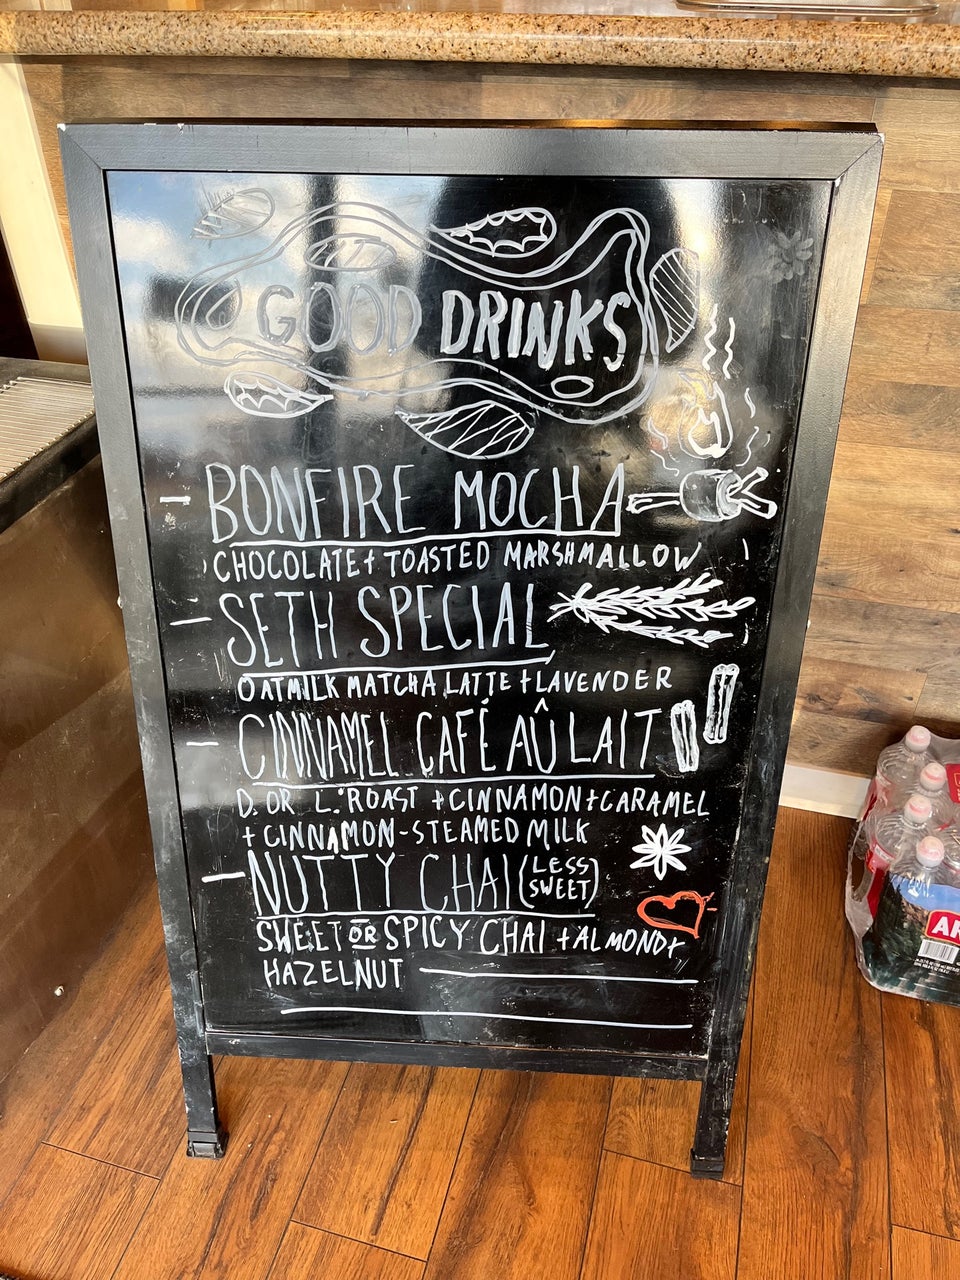 GOOD DRINKS
- BONFIRE MOCHA
CHOCOLATE + TOASTED MARSHMALLOW
- SETH SPECIAL
OATMILK MATCHA LATTE + LAVENDER
- CINNAMEL CAFÉ AÛ LAIT
D. OR L. ROAST + CINNAMON + CARAMEL
+ CINNAMON-STEAMED MILK
- NUTTY CHAI (LESS SWEET)
SWEET OR SPICY CHAI + ALMOND +
HAZELNUT
AR